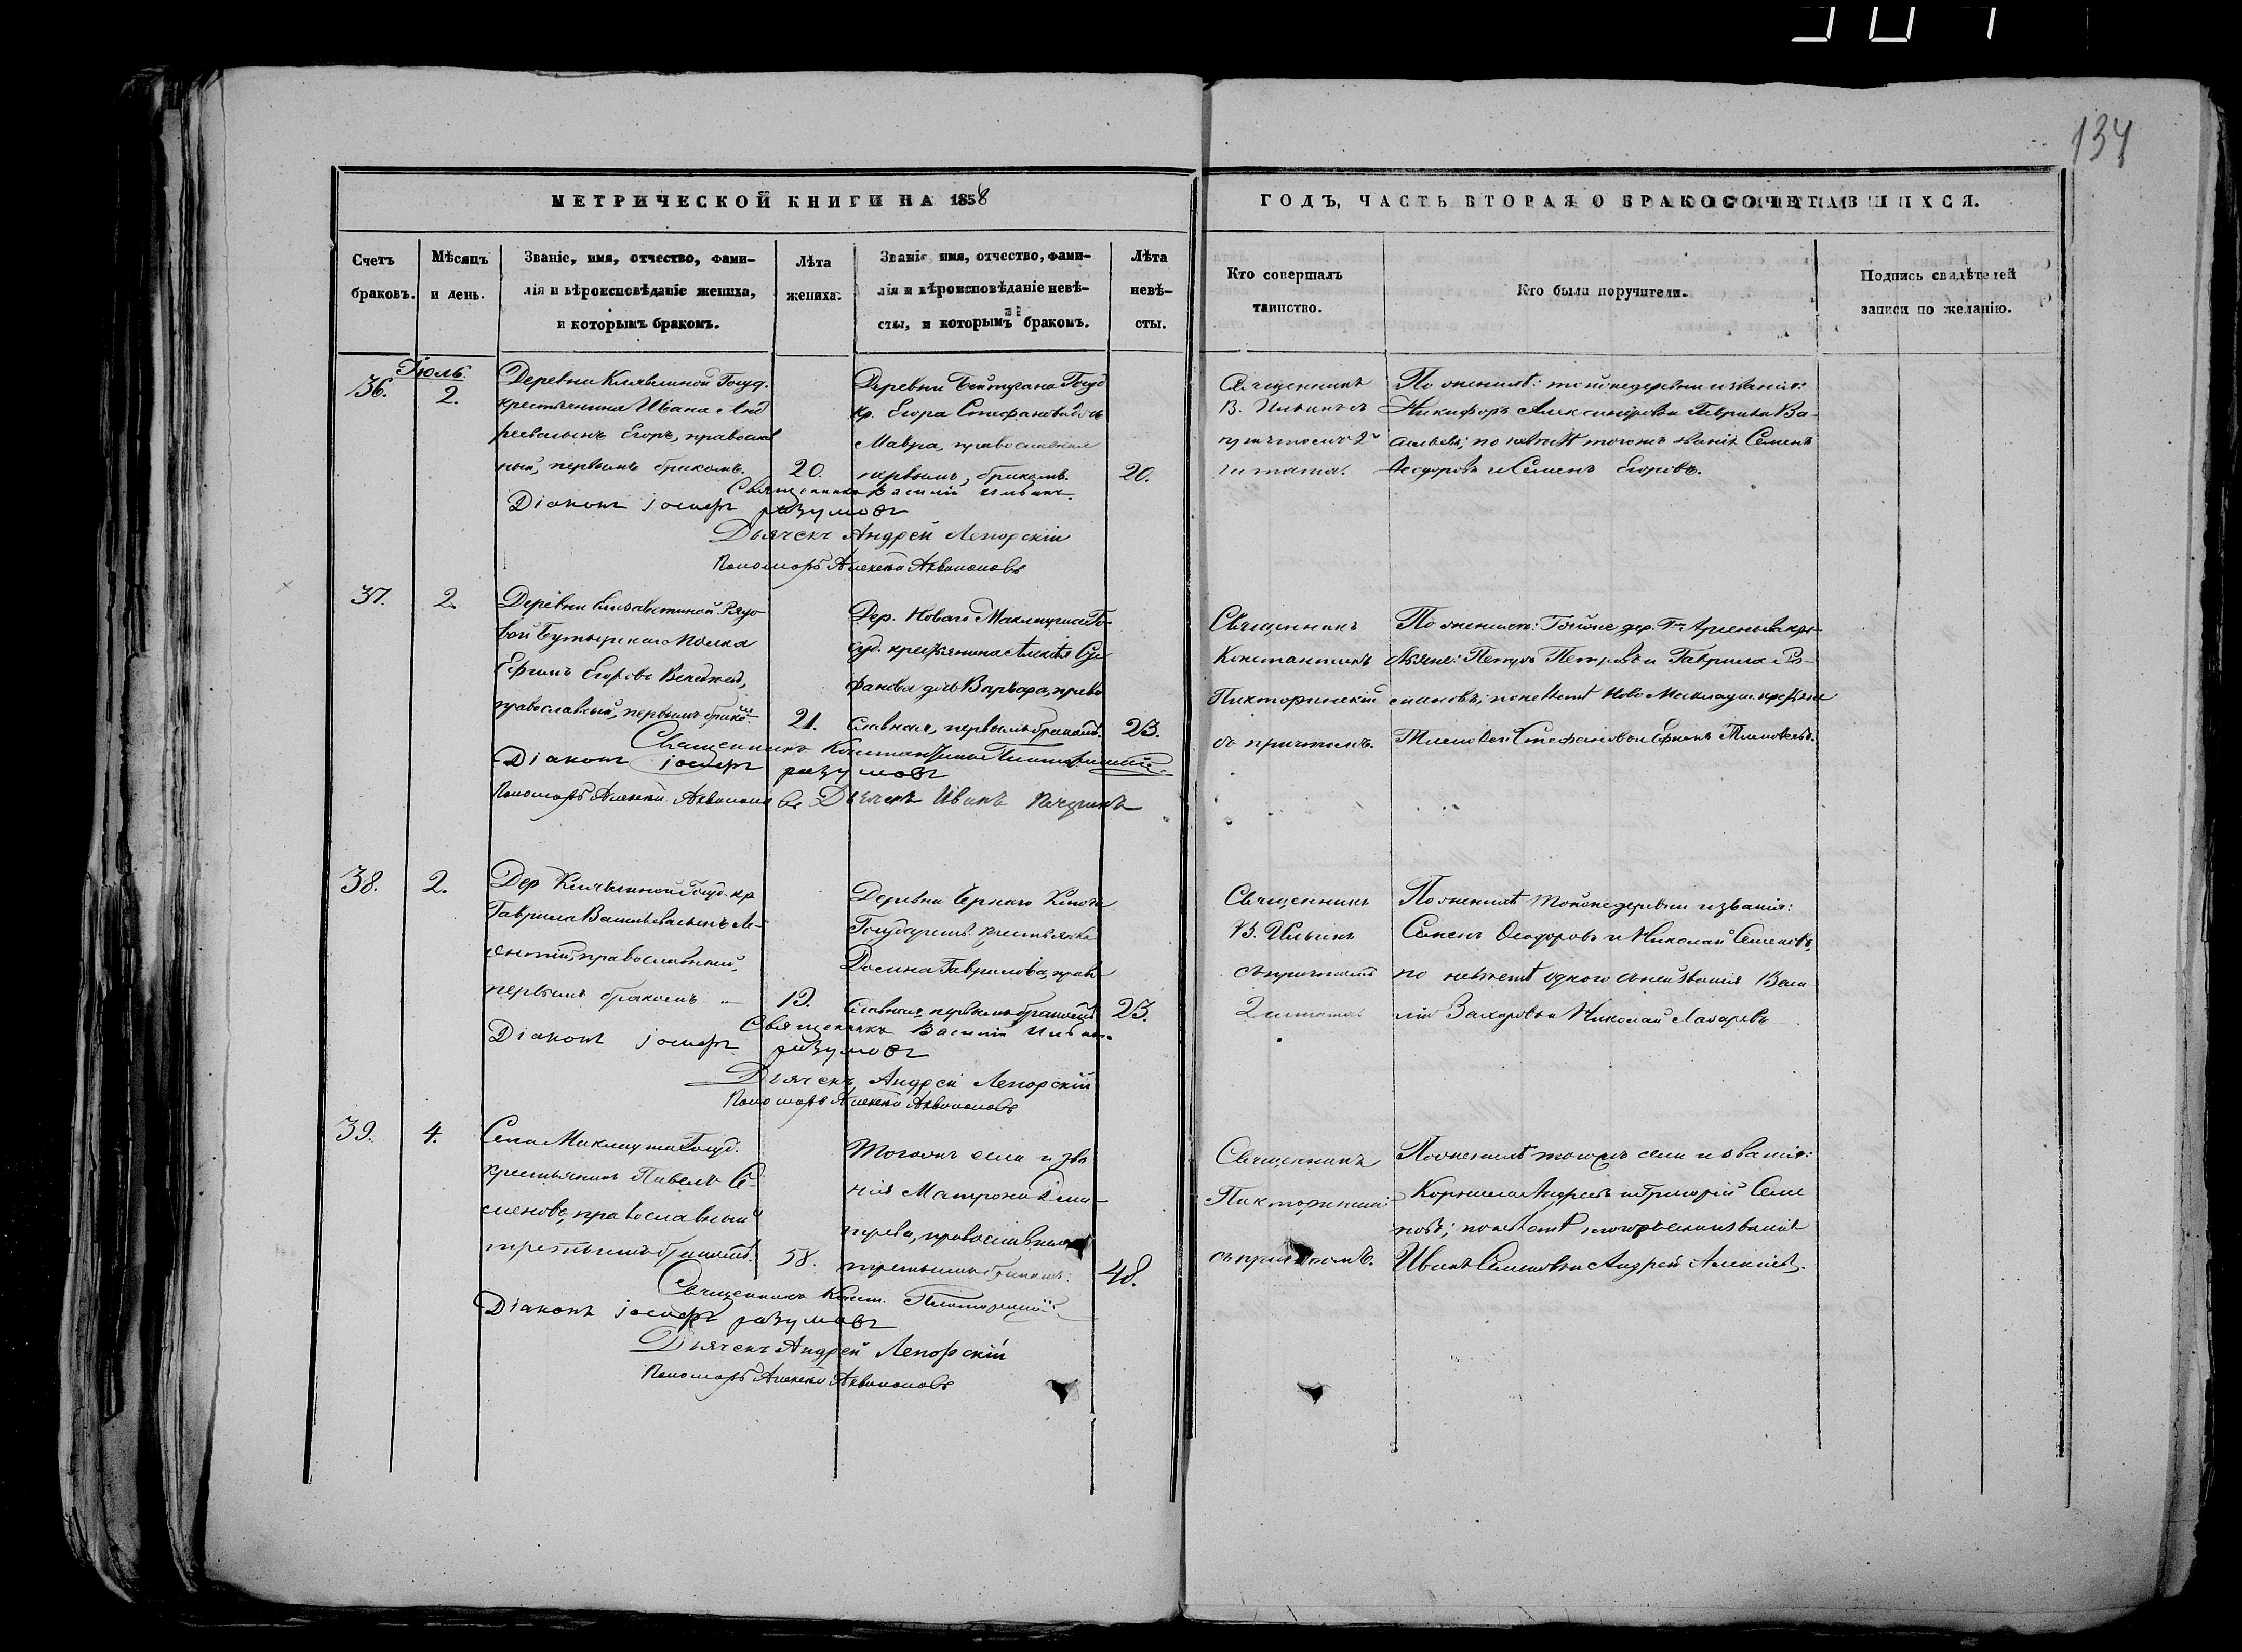 134
МЕТРИЧЕСКОЙ КНИГИ НА 1858
ГОДЪ, ЧАСТЬ ВТОРАЯ О БРАКОСОЧЕТАВШИХСЯ.
Счетъ браковъ.
Мѣсяцъ и день.
Званіе, имя, отчество, фами-
лія и вѣроисповѣданіе жениха,
и которымъ бракомъ.
Лѣта
жениха.
Званіе имя, отчество, фами-
лія и вѣроисповѣданіе невѣ-
сты, и которымъ бракомъ.
Лѣта
невѣ-
сты.
Кто совершалъ
таинство.
Кто были поручители.
Подпись свидѣтелей
записи по желанію.
Іюль.
36.
2.
Деревни Клявлиной Госуд.
крестьянина Ивана Анд
реева сынъ Егоръ, православ
ный, первымъ бракомъ.
20.
Деревни Байтугана Госуд
кр. Егора Стефанова дочь
Мавра, православная
первымъ, бракомъ.
20.
Священникъ
В. Ильинъ съ
причтомъ 2го
штата.
По женихѣ: той же деревни и званія:
Никифоръ Александровъ и Гаврила Ва-
сильевъ; по невѣстѣ того же званія Семенъ
Ѳеодоровъ и Семенъ Егоровъ.
Священникъ Василій Ильинъ
Діаконъ Іосифъ Разумовъ
Дьячекъ Андрей Лепорскій
Пономарь Алексѣй Аквилоновъ
37.
2.
Деревни Елизаветиной Рядо
вой Бутырскаго Полка
Ефимъ Егоровъ
православный, первымъ бракомъ.
21.
Дер. Новаго Маклауша Го-
суд. крестьянина Алексѣя Сте
фанова дочь Варвара, право
славная, первымъ бракомъ.
23.
Священникъ
Константинъ
Пикторинскій
съ причтомъ.
По женихѣ: Той же дер. Гна Арсеньева кре-
стьяне: Петръ Петровъ и Гаврила Ро-
мановъ; по невѣстѣ Ново Маклауш. крестьяне
Стефановъ и Ефимъ
Священникъ Константинъ Пикторинскій
Діаконъ Іосифъ Разумовъ
Пономарь Алексѣй Аквилоновъ Дьячекъ Иванъ
38.
2.
Дер Клявлиной Госуд. кр
Гаврила Васильева сынъ Ле-
онтій, православный,
первымъ бракомъ
19.
Деревни Чернаго Ключа
Государств. крестьянка
Домна Гаврилова, право
славная, первымъ бракомъ
23.
Священникъ
В. Ильинъ
съ причтомъ
2 штата
По женихѣ той же деревни и званія:
Семенъ Ѳеодоровъ и Николай Семеновъ,
по невѣстѣ одного съ нею званія Васи
лій Захаровъ и Николай Лазаревъ
Священникъ Василій Ильинъ
Діаконъ Іосифъ Разумовъ
Дьячекъ Андрей Лепорскій
Пономарь Алексѣй Аквилоновъ
39.
4.
Села Маклауша Госуд.
крестьянинъ Павелъ Се-
меновъ, православный
третьимъ бракомъ.
58.
Того же села и зва
нія Матрона Дими-
тріева, православная
третьимъ бракомъ.
48.
Священникъ
Пикторинскій
съ причтомъ.
По женихѣ того же села и званія:
Корнила Андреевъ и Григорій Семе
новъ; по невѣстѣ того же села и званія
Иванъ Семеновъ и Андрей Алексѣевъ.
Священникъ Конст. Пикторинскій
Діаконъ Іосифъ Разумовъ
Дьячекъ Андрей Лепорскій
Пономарь Алексѣй Аквилоновъ